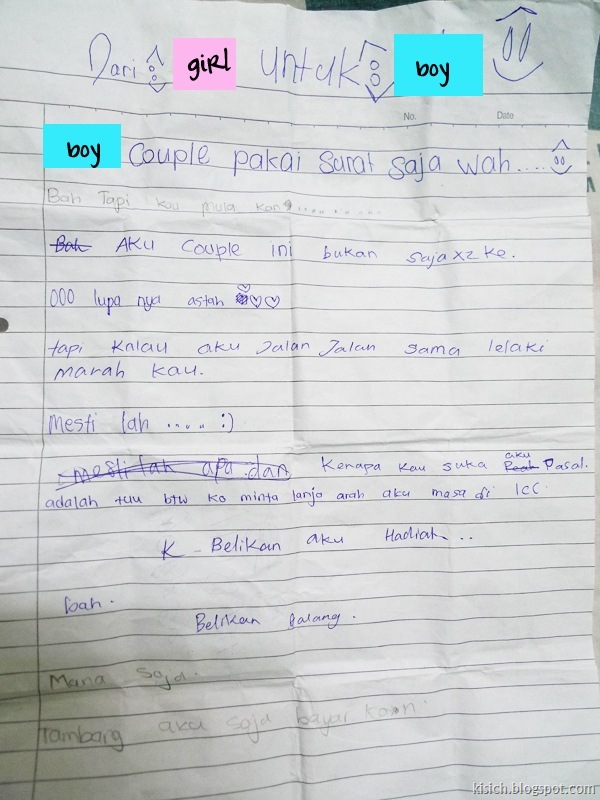 Dari girl untuk boy
No. Date
boy Couple pakai surat saja wah....
Bah Tapi kau mula kan?...........
Bah AKU Couple ini bukan saja x2 ke.
000 lupa nya astah
tapi kalau aku Jalan Jalan sama lelaki
marah kau.
Mesti lah ..... :)
mesti lah apa dan Kenapa kau suka aku Pasal.
adalah tuu btw ko minta lanja arah aku masa di ICC.
K - Belikan aku Hadiah...
bah.
Belikan galang.
Mana saja.
Tambang aku saja bayar kaan.
kisich.blogspot.com